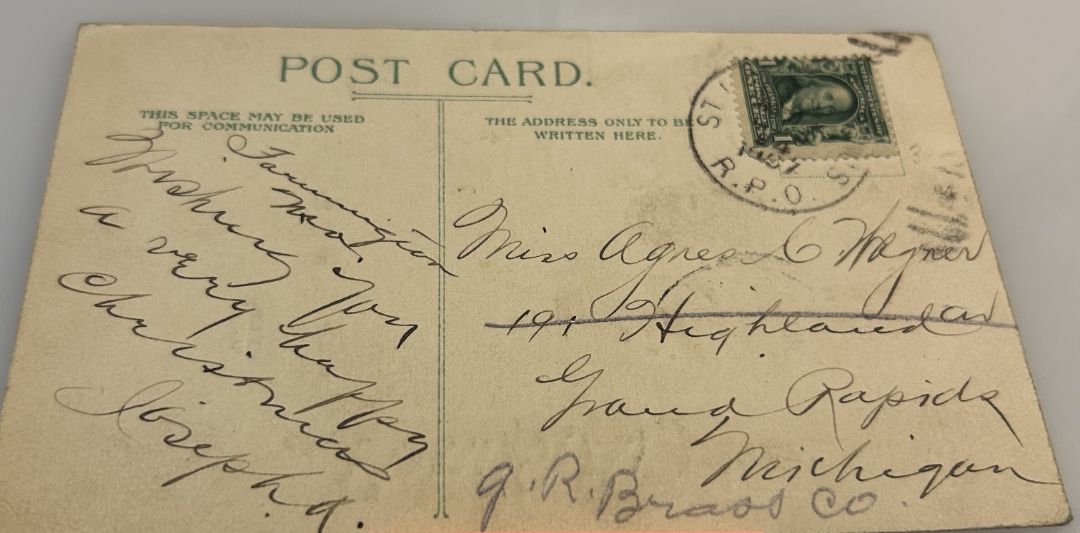 POST CARD.
THIS SPACE MAY BE USED
FOR COMMUNICATION
THE ADDRESS ONLY TO BE
WRITTEN HERE.
ST
R.P.O.
Farmington
Mo.
Wishing you
a very happy
Christmas
Joseph A.
Miss Agnes C Wagner
191 Highland av
Grand Rapids
Michigan
G.R. Brass Co.